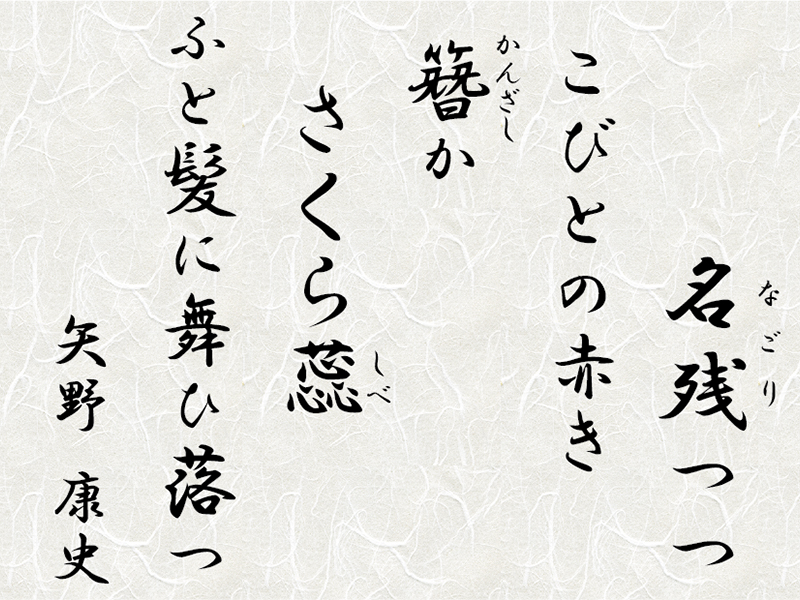 名残つつ
なごり
こびとの赤き
簪か
かんざし
さくら蕊
しべ
ふと髪に舞ひ落つ
矢野 康史